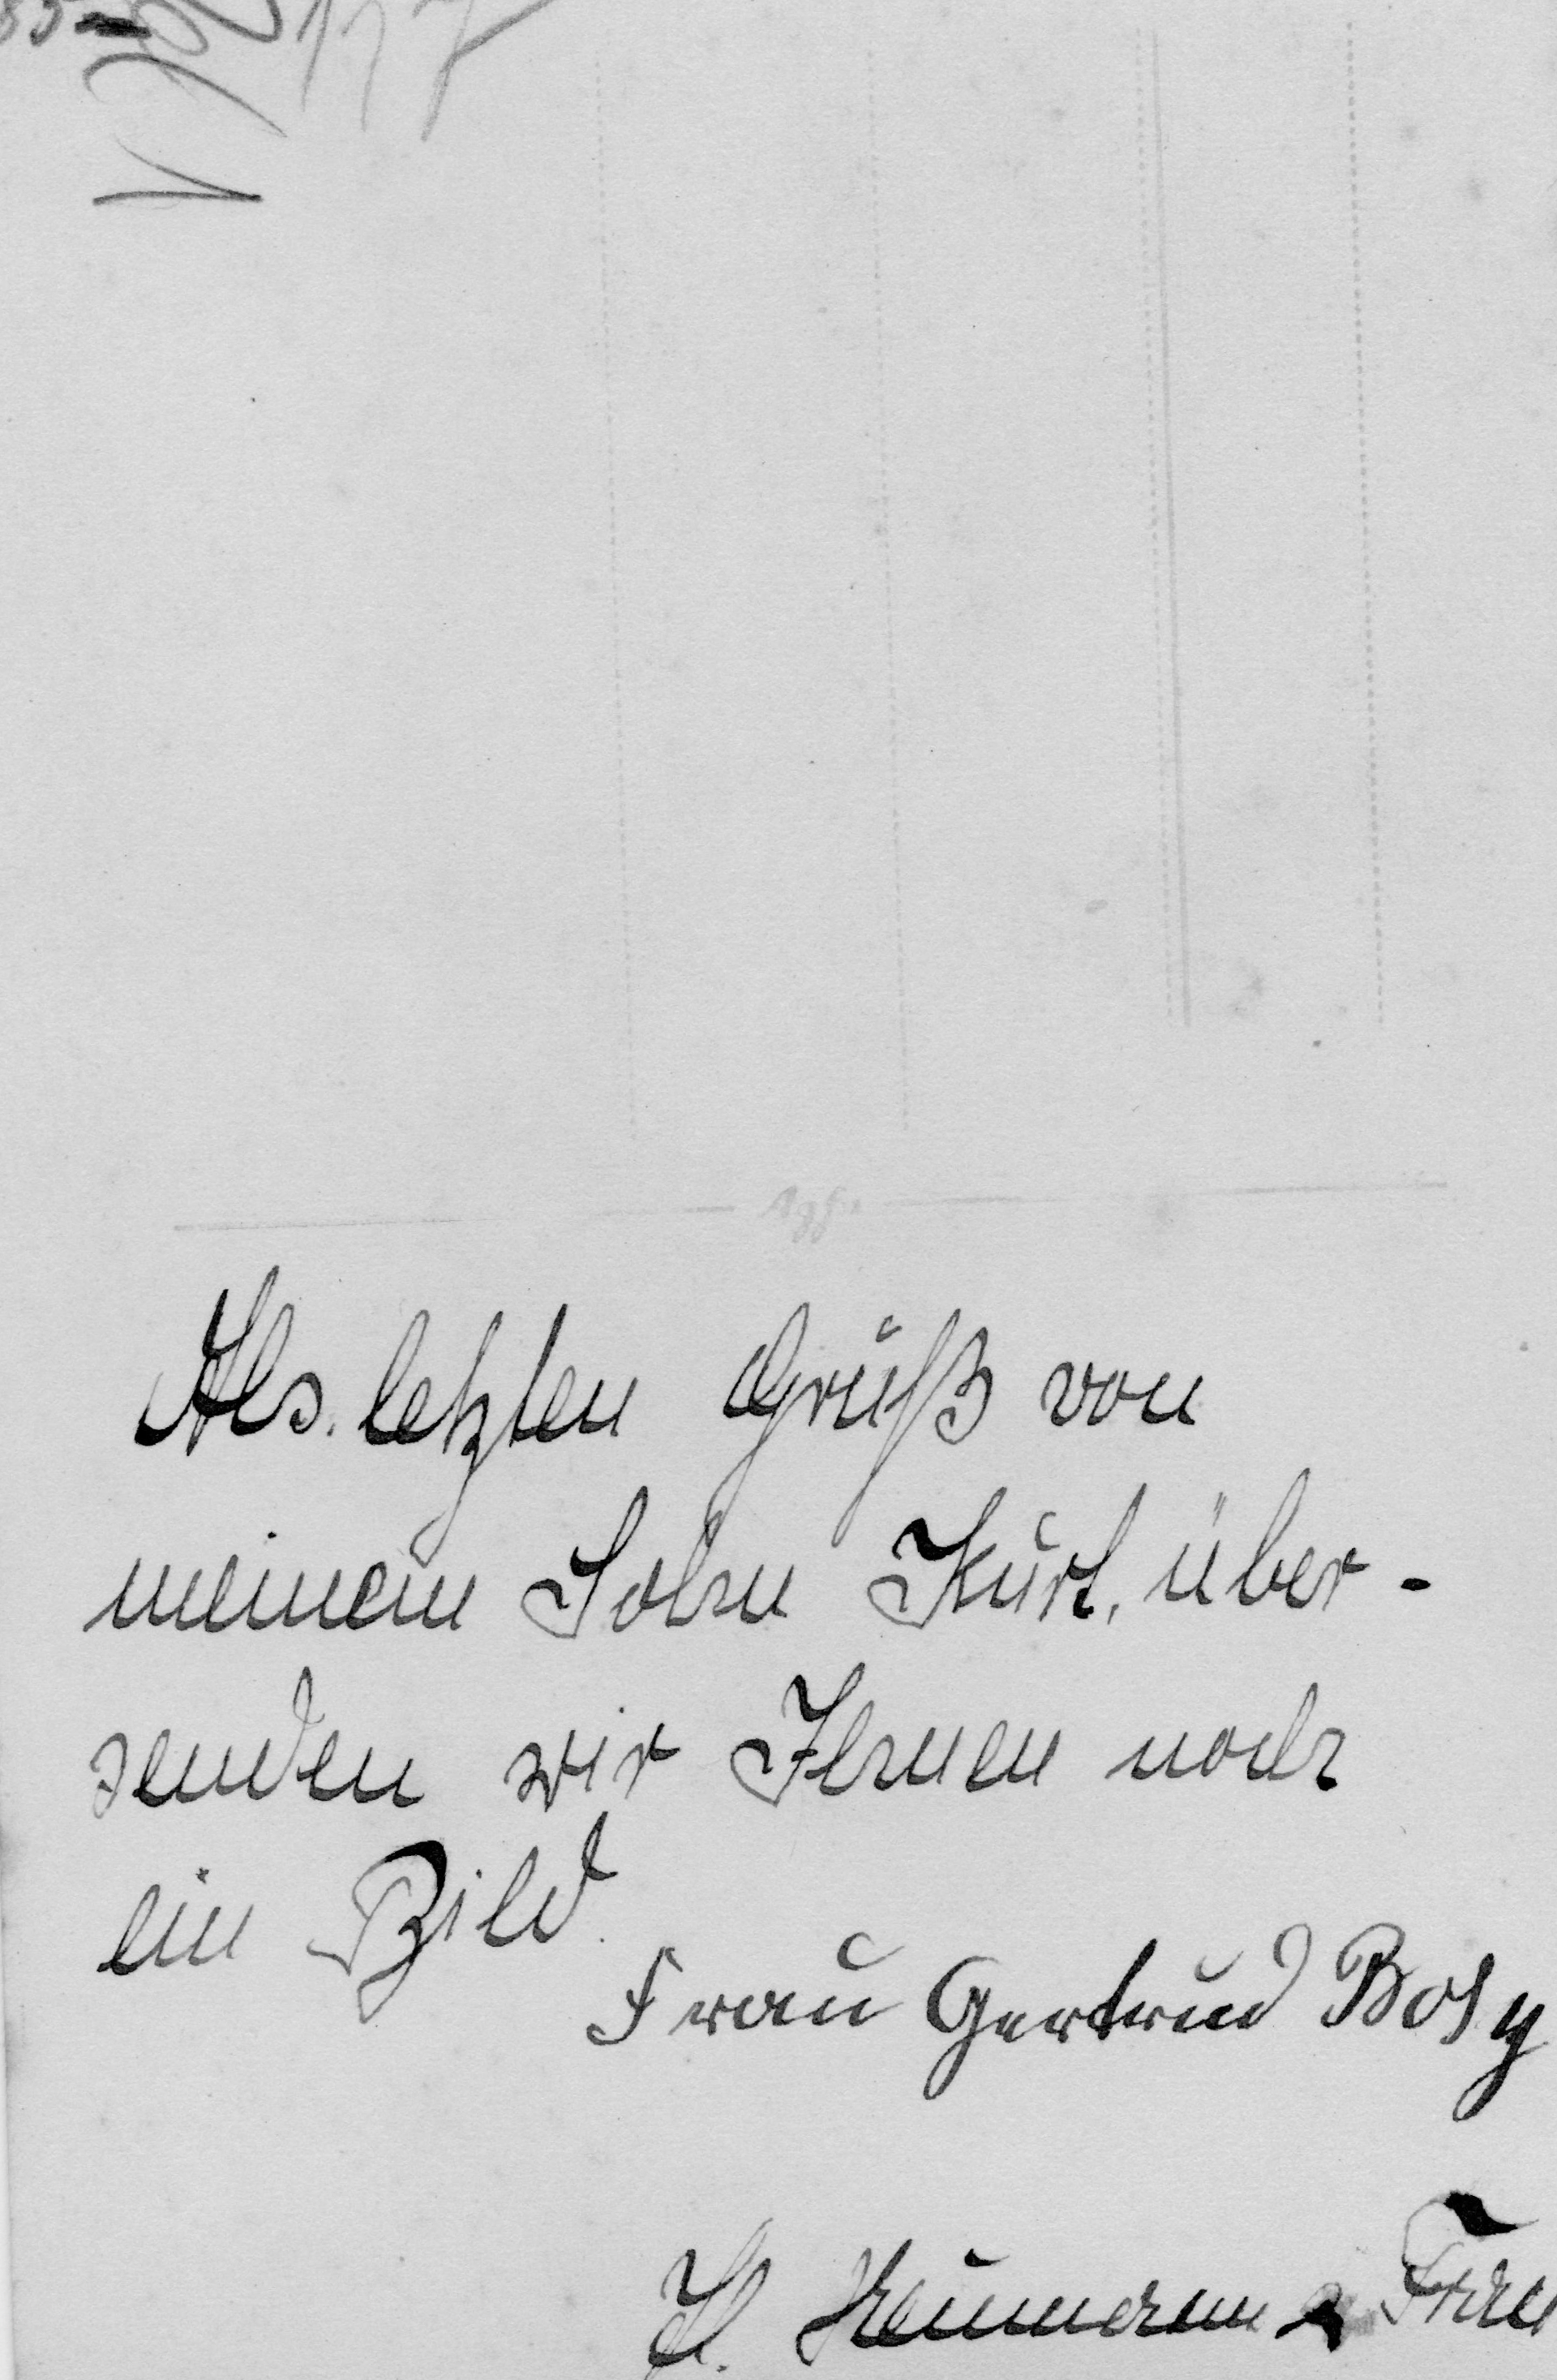 177
Agfa
Als letzten Gruß von
meinem Sohn Kurt, über-
senden wir Ihnen noch
ein Bild.
Frau Gertrud Bosy
H. Neumann & Frau